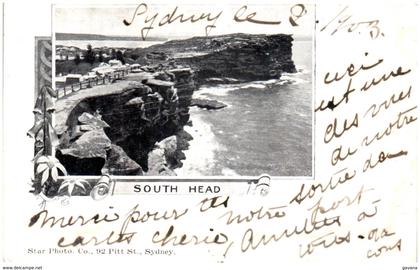 Sydney le 8-1/1903
ceci
est une
des vues
de notre
sortie du
SOUTH HEAD
notre port
Merci pour tes
cartes cherie, Amities à
vous
Star Photo. Co., 92 Pitt St., Sydney.